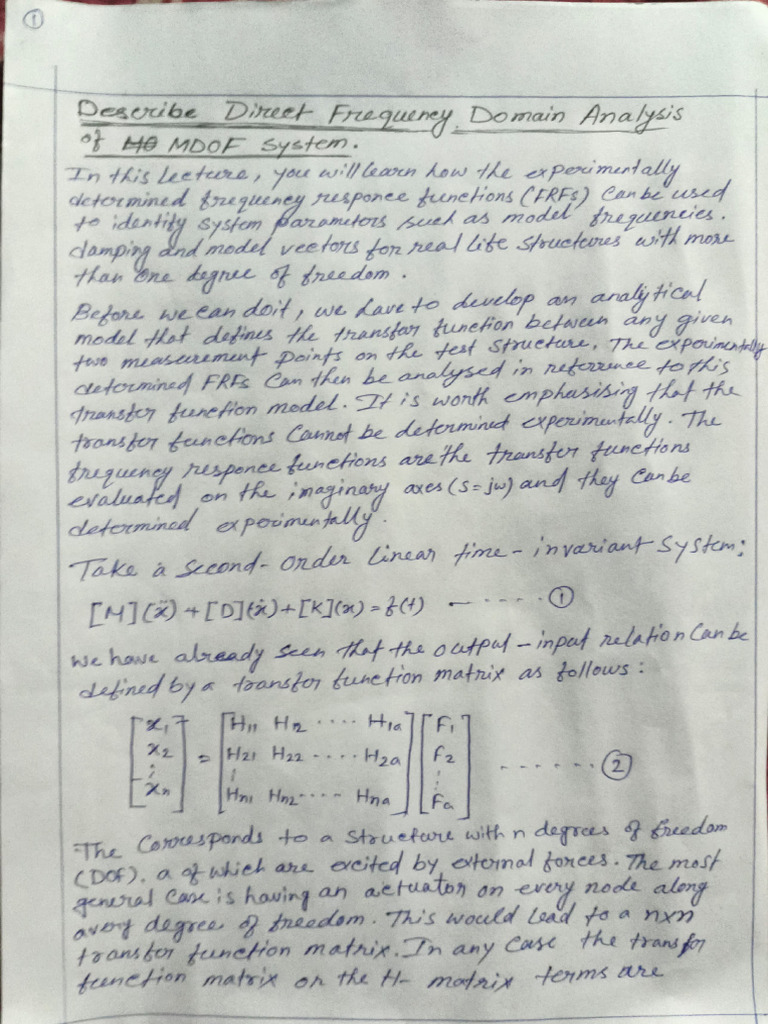 ①
Describe Direct Frequency Domain Analysis
of MDOF System.
In this Lecture, you will learn how the experimentally
determined frequency responce functions (FRFs) Can be used
to identify system parameters such as model frequencies.
damping and model vectors for real life structures with more
than one degree of freedom.
Before we can do it, we have to develop an analytical
model that defines the transfer function between any given
two measurement Points on the test structure. The experimentally
determined FRFs Can then be analysed in reference to this
transfer function model. It is worth emphasising that the
transfer functions Cannot be determined experimentally. The
frequency responce functions are the transfer functions
evaluated on the imaginary axes (S=jw) and they can be
determined experimentally.
Take a Second-order linear time-invariant System:
[M](ẍ)+[D](ẋ)+[K](x) = f(t) - - - - - ①
we have already seen that the output-input relation Can be
defined by a transfer function matrix as follows:
[x1] = [H11 H12 .... H1a] [F1]
[x2] [H21 H22 .... H2a] [F2] ...... ②
[⋮] [⋮] [⋮]
[xn] [Hn1 Hn2 .... Hna] [Fa]
The Corresponds to a structure with n degrees of freedom
(DOF), a of which are excited by external forces. The most
general case is having an actuator on every node along
avery degree of freedom. This would lead to a nxn
transfer function matrix. In any case the transfer
function matrix or the H- matrix terms are